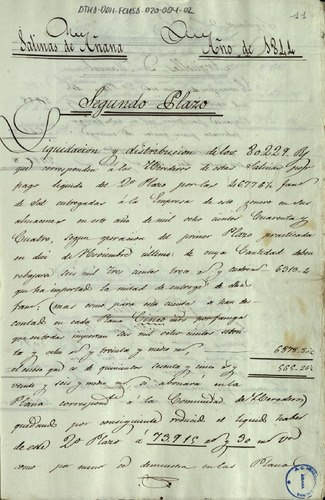 DTHA-DAH-FCMSA-020-004-02
11
Salinas de Añana Año de 1844
Segundo Plazo
Liquidacion y distribucion de los 80229
que corresponden á los Herederos de estas Salinas por
pago liquido del 2º Plazo por las 46776½ fans
de Sal entregadas á la Empresa de este genero en sus
almacenes en este año de mil ocho cientos Cuarenta y
Cuatro, segun operacion del primer Plazo practicada
en dos de Noviembre ultimo: de cuya Cantidad deben
rebajarse seis mil tres cientos trece y cuatro 6313.4
que ha importado la mitad de entrega de dhas
fans (mas como para esta cuenta se han des-
contado en cada Plana Cinco mrs por fanega
que en todas importan seis mil ocho cientos setenta
y ocho y treinta y medio mrs 6878.30½
el exceso que es de quinientos sesenta y cinco
veinte y seis y medio mrs se abonara en la 565.26½
Plana correspondte á la Comunidad de Herederos,
quedando por consiguiente reducido el liquido haber
de este 2º Plazo á 73,915 y 30 mrs
como por menor se demuestra en las Planas